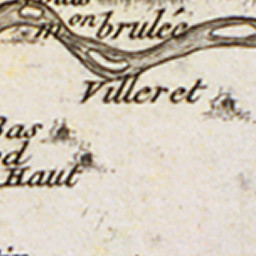 m.on brulée
Villeret
Bas
Haut